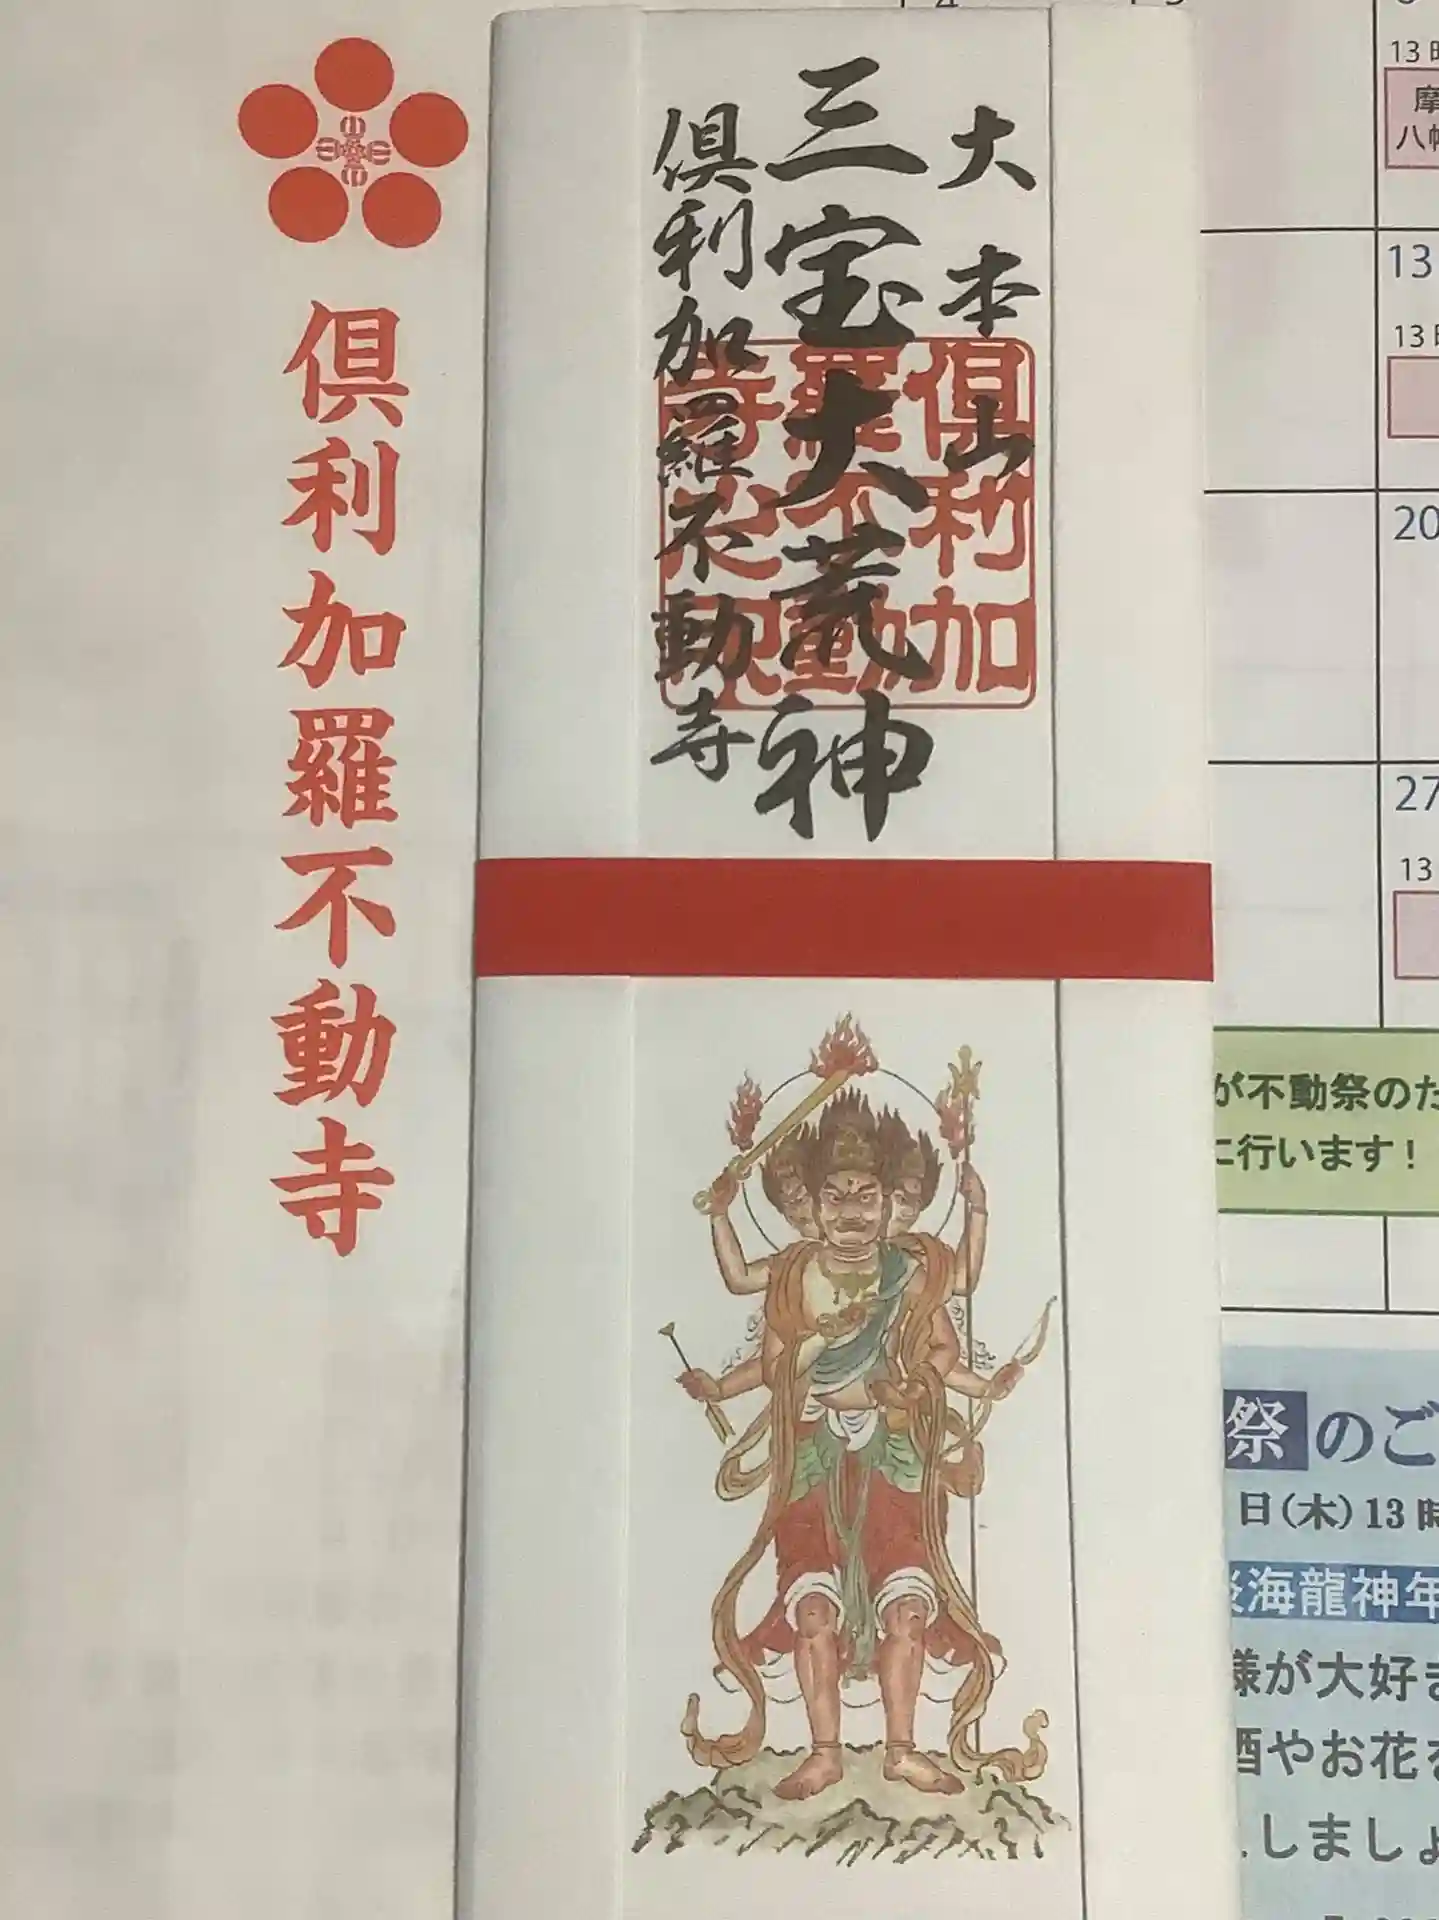 倶利加羅不動寺
大本山
三宝大荒神
倶利加羅不動寺
倶利加
羅不動
13
13
20
27
13
が不動祭のた
に行います！
祭のご
日(木)13時
海龍神年
様が大好き
酒やお花を
しましょ